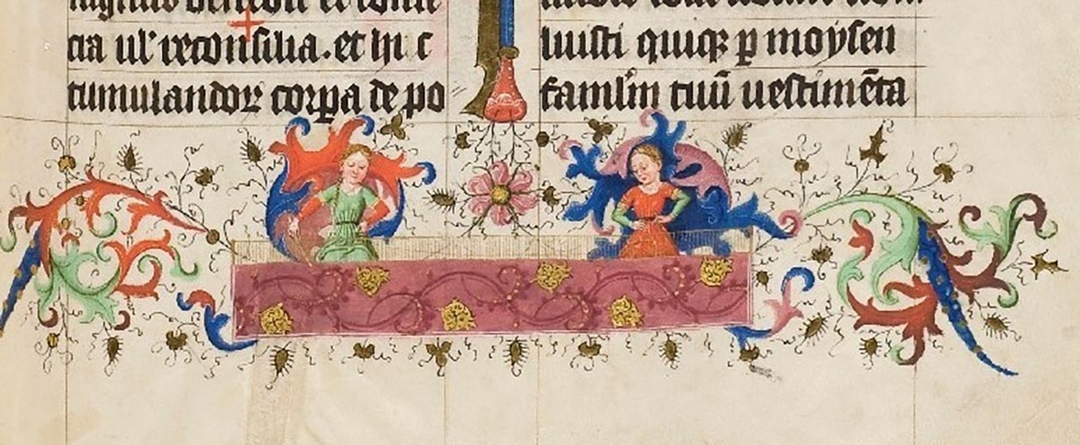 cia ul' reconsilia. et hi c
tumulandoꝝ corpa de po
luisti quiqꝫ p moysen
famlm tuū uestimēta